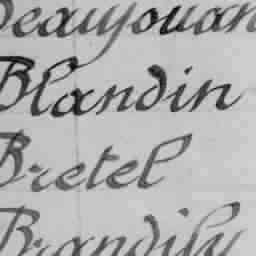 Beaujouan
Blandin
Bretel
Brandily